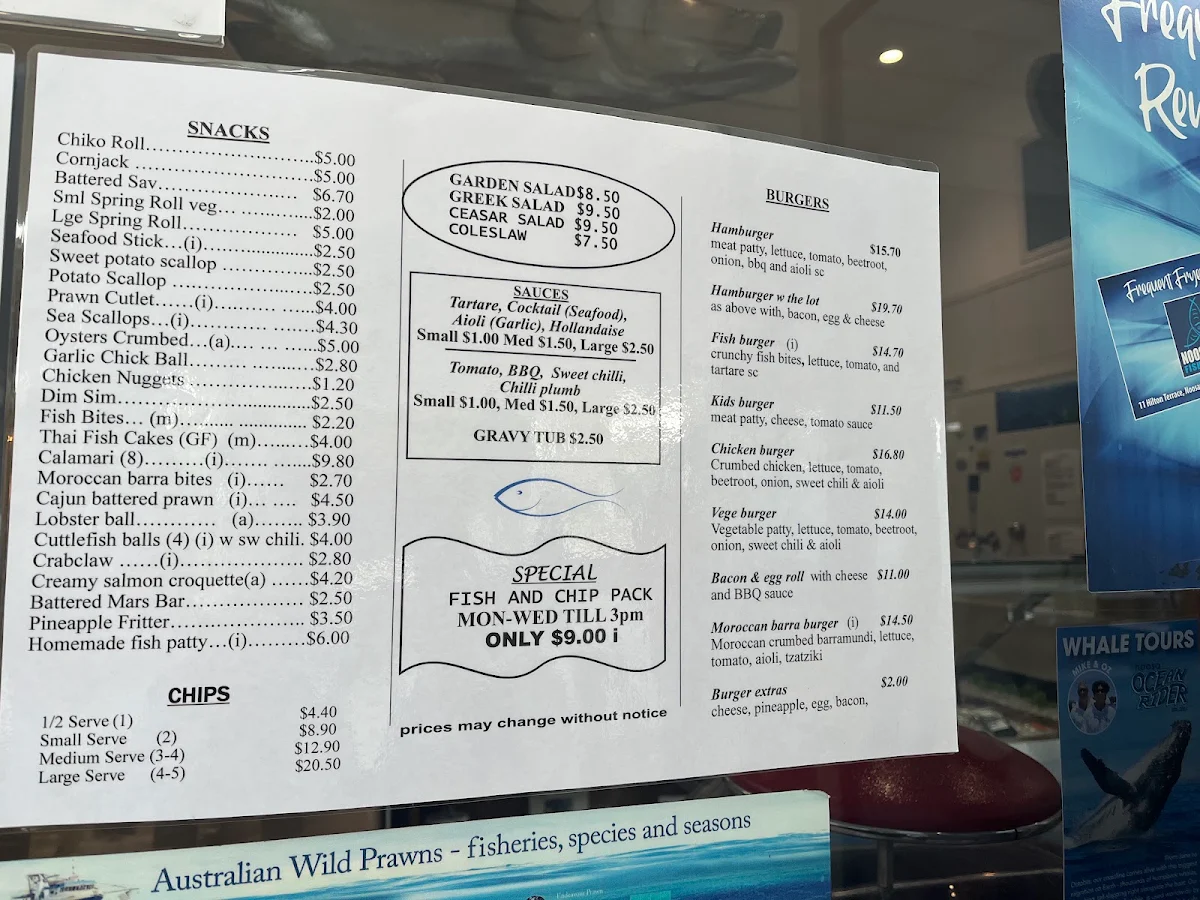 SNACKS
Chiko Roll.........................$5.00
Cornjack ...........................$5.00
Battered Sav..................... $6.70
Sml Spring Roll veg... ...........$2.00
Lge Spring Roll................. $5.00
Seafood Stick...(i)..................$2.50
Sweet potato scallop ..............$2.50
Potato Scallop ..................... $2.50
Prawn Cutlet......(i)............ ......$4.00
Sea Scallops...(i)............. ....$4.30
Oysters Crumbed...(a).... ... ......$5.00
Garlic Chick Ball............. .......$2.80
Chicken Nuggets....................$1.20
Dim Sim...............................$2.50
Fish Bites... (m)......... ............$2.20
Thai Fish Cakes (GF) (m).........$4.00
Calamari (8).........(i)....... .......$9.80
Moroccan barra bites (i)...... $2.70
Cajun battered prawn (i)... .... $4.50
Lobster ball............ (a)........ $3.90
Cuttlefish balls (4) (i) w sw chili. $4.00
Crabclaw ......(i)................... $2.80
Creamy salmon croquette(a) ......$4.20
Battered Mars Bar................. $2.50
Pineapple Fritter.................... $3.50
Homemade fish patty...(i).........$6.00
CHIPS
1/2 Serve (1) $4.40
Small Serve (2) $8.90
Medium Serve (3-4) $12.90
Large Serve (4-5) $20.50
GARDEN SALAD$8.50
GREEK SALAD $9.50
CEASAR SALAD $9.50
COLESLAW $7.50
SAUCES
Tartare, Cocktail (Seafood),
Aioli (Garlic), Hollandaise
Small $1.00 Med $1.50, Large $2.50
Tomato, BBQ, Sweet chilli,
Chilli plumb
Small $1.00, Med $1.50, Large $2.50
GRAVY TUB $2.50
SPECIAL
FISH AND CHIP PACK
MON-WED TILL 3pm
ONLY $9.00 i
prices may change without notice
BURGERS
Hamburger $15.70
meat patty, lettuce, tomato, beetroot,
onion, bbq and aioli sc
Hamburger w the lot $19.70
as above with, bacon, egg & cheese
Fish burger (i) $14.70
crunchy fish bites, lettuce, tomato, and
tartare sc
Kids burger $11.50
meat patty, cheese, tomato sauce
Chicken burger $16.80
Crumbed chicken, lettuce, tomato,
beetroot, onion, sweet chili & aioli
Vege burger $14.00
Vegetable patty, lettuce, tomato, beetroot,
onion, sweet chili & aioli
Bacon & egg roll with cheese $11.00
and BBQ sauce
Moroccan barra burger (i) $14.50
Moroccan crumbed barramundi, lettuce,
tomato, aioli, tzatziki
Burger extras $2.00
cheese, pineapple, egg, bacon,
Frequent Frye
11 Hilton Terrace,
WHALE TOURS
MIKE & OT
OCEAN
RIDER
Australian Wild Prawns - fisheries, species and seasons